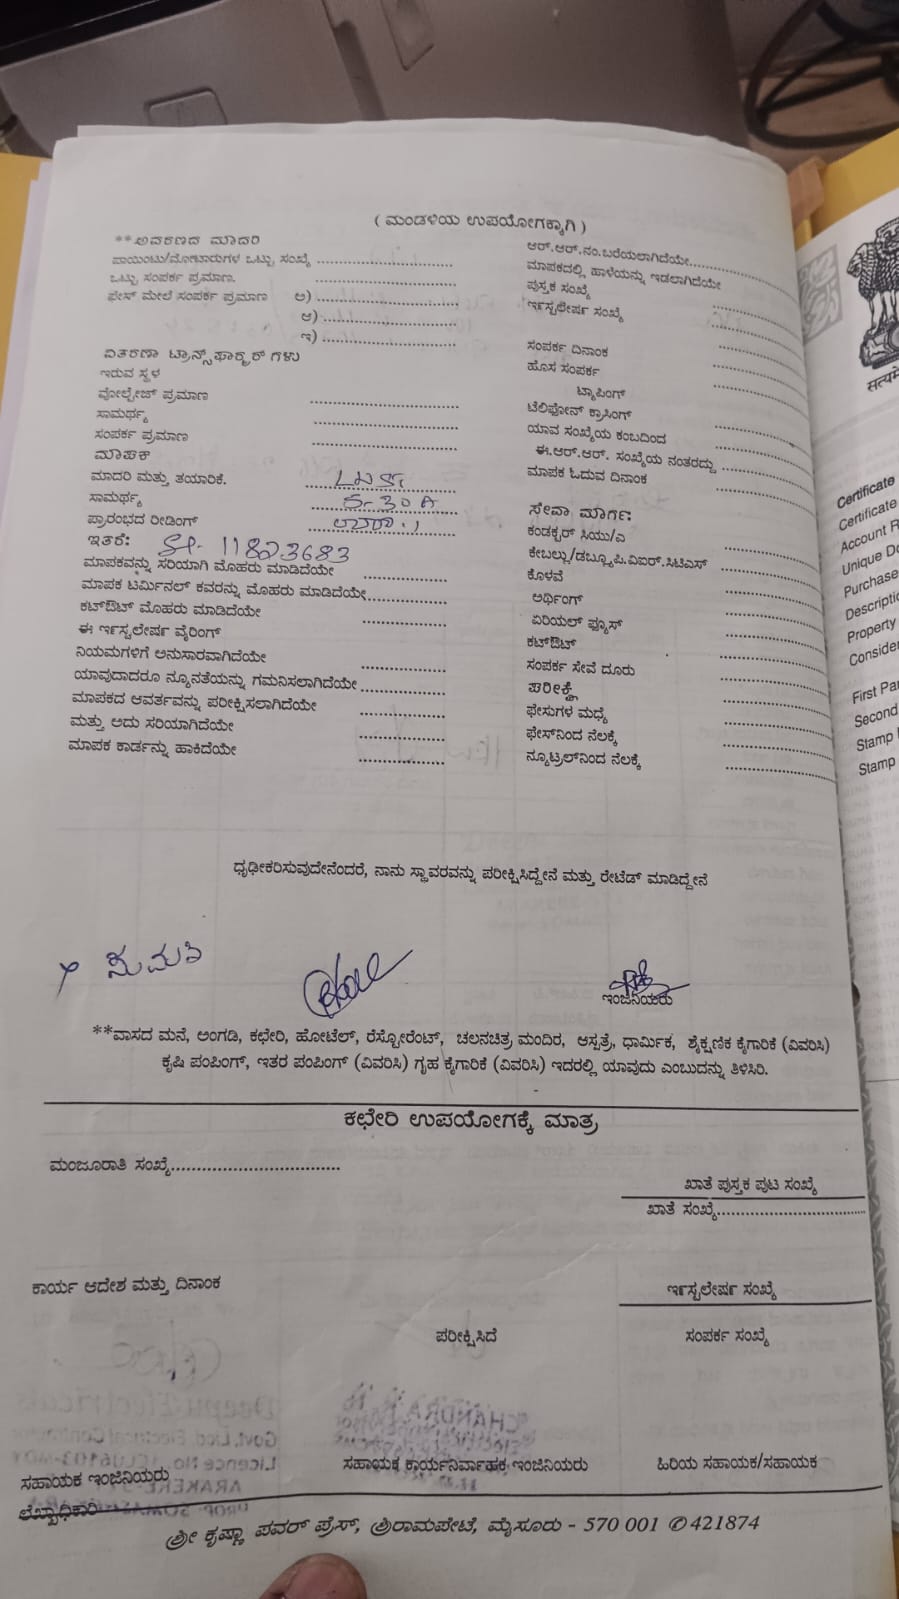 ( ಮಂಡಳಿಯ ಉಪಯೋಗಕ್ಕಾಗಿ )
**ಆವರಣದ ಮಾದರಿ
ಪಾಯಿಂಟು/ಮೋಟಾರುಗಳ ಒಟ್ಟು ಸಂಖ್ಯೆ ..............................
ಒಟ್ಟು ಸಂಪರ್ಕ ಪ್ರಮಾಣ. ..............................
ಫೇಸ್ ಮೇಲೆ ಸಂಪರ್ಕ ಪ್ರಮಾಣ ಅ) ..............................
ಆ) ..............................
ಇ) ..............................
ವಿತರಣಾ ಟ್ರಾನ್ಸ್‌ಫಾರ್ಮರ್ ಗಳು
ಇರುವ ಸ್ಥಳ
ವೋಲ್ಟೇಜ್ ಪ್ರಮಾಣ ..............................
ಸಾಮರ್ಥ್ಯ ..............................
ಸಂಪರ್ಕ ಪ್ರಮಾಣ ..............................
ಮಾಪಕ
ಮಾದರಿ ಮತ್ತು ತಯಾರಿಕೆ.
ಸಾಮರ್ಥ್ಯ 5-30 A
ಪ್ರಾರಂಭದ ರೀಡಿಂಗ್
ಇತರೆ: Sl. 11823683
ಮಾಪಕವನ್ನು ಸರಿಯಾಗಿ ಮೊಹರು ಮಾಡಿದೆಯೇ ....................
ಮಾಪಕ ಟರ್ಮಿನಲ್ ಕವರನ್ನು ಮೊಹರು ಮಾಡಿದೆಯೇ....................
ಕಟ್‌ಔಟ್ ಮೊಹರು ಮಾಡಿದೆಯೇ ....................
ಈ ಇನ್ಸ್ಟಲೇಷನ್ ವೈರಿಂಗ್
ನಿಯಮಗಳಿಗೆ ಅನುಸಾರವಾಗಿದೆಯೇ ....................
ಯಾವುದಾದರೂ ನ್ಯೂನತೆಯನ್ನು ಗಮನಿಸಲಾಗಿದೆಯೇ ....................
ಮಾಪಕದ ಆವರ್ತವನ್ನು ಪರೀಕ್ಷಿಸಲಾಗಿದೆಯೇ ....................
ಮತ್ತು ಅದು ಸರಿಯಾಗಿದೆಯೇ ....................
ಮಾಪಕ ಕಾರ್ಡನ್ನು ಹಾಕಿದೆಯೇ ....................
ಆರ್.ಆರ್.ನಂ.ಬರೆಯಲಾಗಿದೆಯೇ....................
ಮಾಪಕದಲ್ಲಿ ಹಾಳೆಯನ್ನು ಇಡಲಾಗಿದೆಯೇ
ಪುಸ್ತಕ ಸಂಖ್ಯೆ ....................
ಇನ್ಸ್ಟಲೇಷನ್ ಸಂಖ್ಯೆ ....................
ಸಂಪರ್ಕ ದಿನಾಂಕ ....................
ಹೊಸ ಸಂಪರ್ಕ ....................
ಟ್ಯಾಪಿಂಗ್
ಟೆಲಿಫೋನ್ ಕ್ರಾಸಿಂಗ್ ....................
ಯಾವ ಸಂಖ್ಯೆಯ ಕಂಬದಿಂದ ....................
ಈ.ಆರ್.ಆರ್. ಸಂಖ್ಯೆಯ ನಂತರದ್ದು ....................
ಮಾಪಕ ಓದುವ ದಿನಾಂಕ ....................
ಸೇವಾ ಮಾರ್ಗ:
ಕಂಡಕ್ಟರ್ ಸಿಯು/ಎ ....................
ಕೇಬಲ್ಲು/ಡಬ್ಲ್ಯೂ.ಪಿ.ವಿಐಆರ್.ಸಿಟಿಎಸ್ ....................
ಕೊಳವೆ ....................
ಅರ್ಥಿಂಗ್ ....................
ಏರಿಯಲ್ ಫ್ಯೂಸ್ ....................
ಕಟ್‌ಔಟ್ ....................
ಸಂಪರ್ಕ ಸೇವೆ ದೂರು ....................
ಪರೀಕ್ಷೆ ....................
ಫೇಸುಗಳ ಮಧ್ಯೆ ....................
ಫೇಸ್‌ನಿಂದ ನೆಲಕ್ಕೆ ....................
ನ್ಯೂಟ್ರಲ್‌ನಿಂದ ನೆಲಕ್ಕೆ ....................
ಧೃಢೀಕರಿಸುವುದೇನೆಂದರೆ, ನಾನು ಸ್ಥಾವರವನ್ನು ಪರೀಕ್ಷಿಸಿದ್ದೇನೆ ಮತ್ತು ರೇಟೆಡ್ ಮಾಡಿದ್ದೇನೆ
ಸುಮತಿ
ಇಂಜಿನಿಯರು
**ವಾಸದ ಮನೆ, ಅಂಗಡಿ, ಕಛೇರಿ, ಹೋಟೆಲ್, ರೆಸ್ಟೋರೆಂಟ್, ಚಲನಚಿತ್ರ ಮಂದಿರ, ಆಸ್ಪತ್ರೆ, ಧಾರ್ಮಿಕ, ಶೈಕ್ಷಣಿಕ ಕೈಗಾರಿಕೆ (ವಿವರಿಸಿ)
ಕೃಷಿ ಪಂಪಿಂಗ್, ಇತರ ಪಂಪಿಂಗ್ (ವಿವರಿಸಿ) ಗೃಹ ಕೈಗಾರಿಕೆ (ವಿವರಿಸಿ) ಇದರಲ್ಲಿ ಯಾವುದು ಎಂಬುದನ್ನು ತಿಳಿಸಿರಿ.
ಕಛೇರಿ ಉಪಯೋಗಕ್ಕೆ ಮಾತ್ರ
ಮಂಜೂರಾತಿ ಸಂಖ್ಯೆ..............................
ಖಾತೆ ಪುಸ್ತಕ ಪುಟ ಸಂಖ್ಯೆ
ಖಾತೆ ಸಂಖ್ಯೆ..............................
ಕಾರ್ಯ ಆದೇಶ ಮತ್ತು ದಿನಾಂಕ
ಇನ್ಸ್ಟಲೇಷನ್ ಸಂಖ್ಯೆ
ಪರೀಕ್ಷಿಸಿದೆ
ಸಂಪರ್ಕ ಸಂಖ್ಯೆ
ಸಹಾಯಕ ಇಂಜಿನಿಯರು
ಸಹಾಯಕ ಕಾರ್ಯನಿರ್ವಾಹಕ ಇಂಜಿನಿಯರು
ಹಿರಿಯ ಸಹಾಯಕ/ಸಹಾಯಕ
ಲೆಖ್ಖಾಧಿಕಾರಿ
ಶ್ರೀ ಕೃಷ್ಣಾ ಪವರ್ ಪ್ರೆಸ್, ಶ್ರೀರಾಮಪೇಟೆ, ಮೈಸೂರು - 570 001 ✆ 421874
सत्यमे
Certificate
Certificate
Account R
Unique Do
Purchase
Descripti
Property
Consider
First Pa
Second
Stamp
Stamp